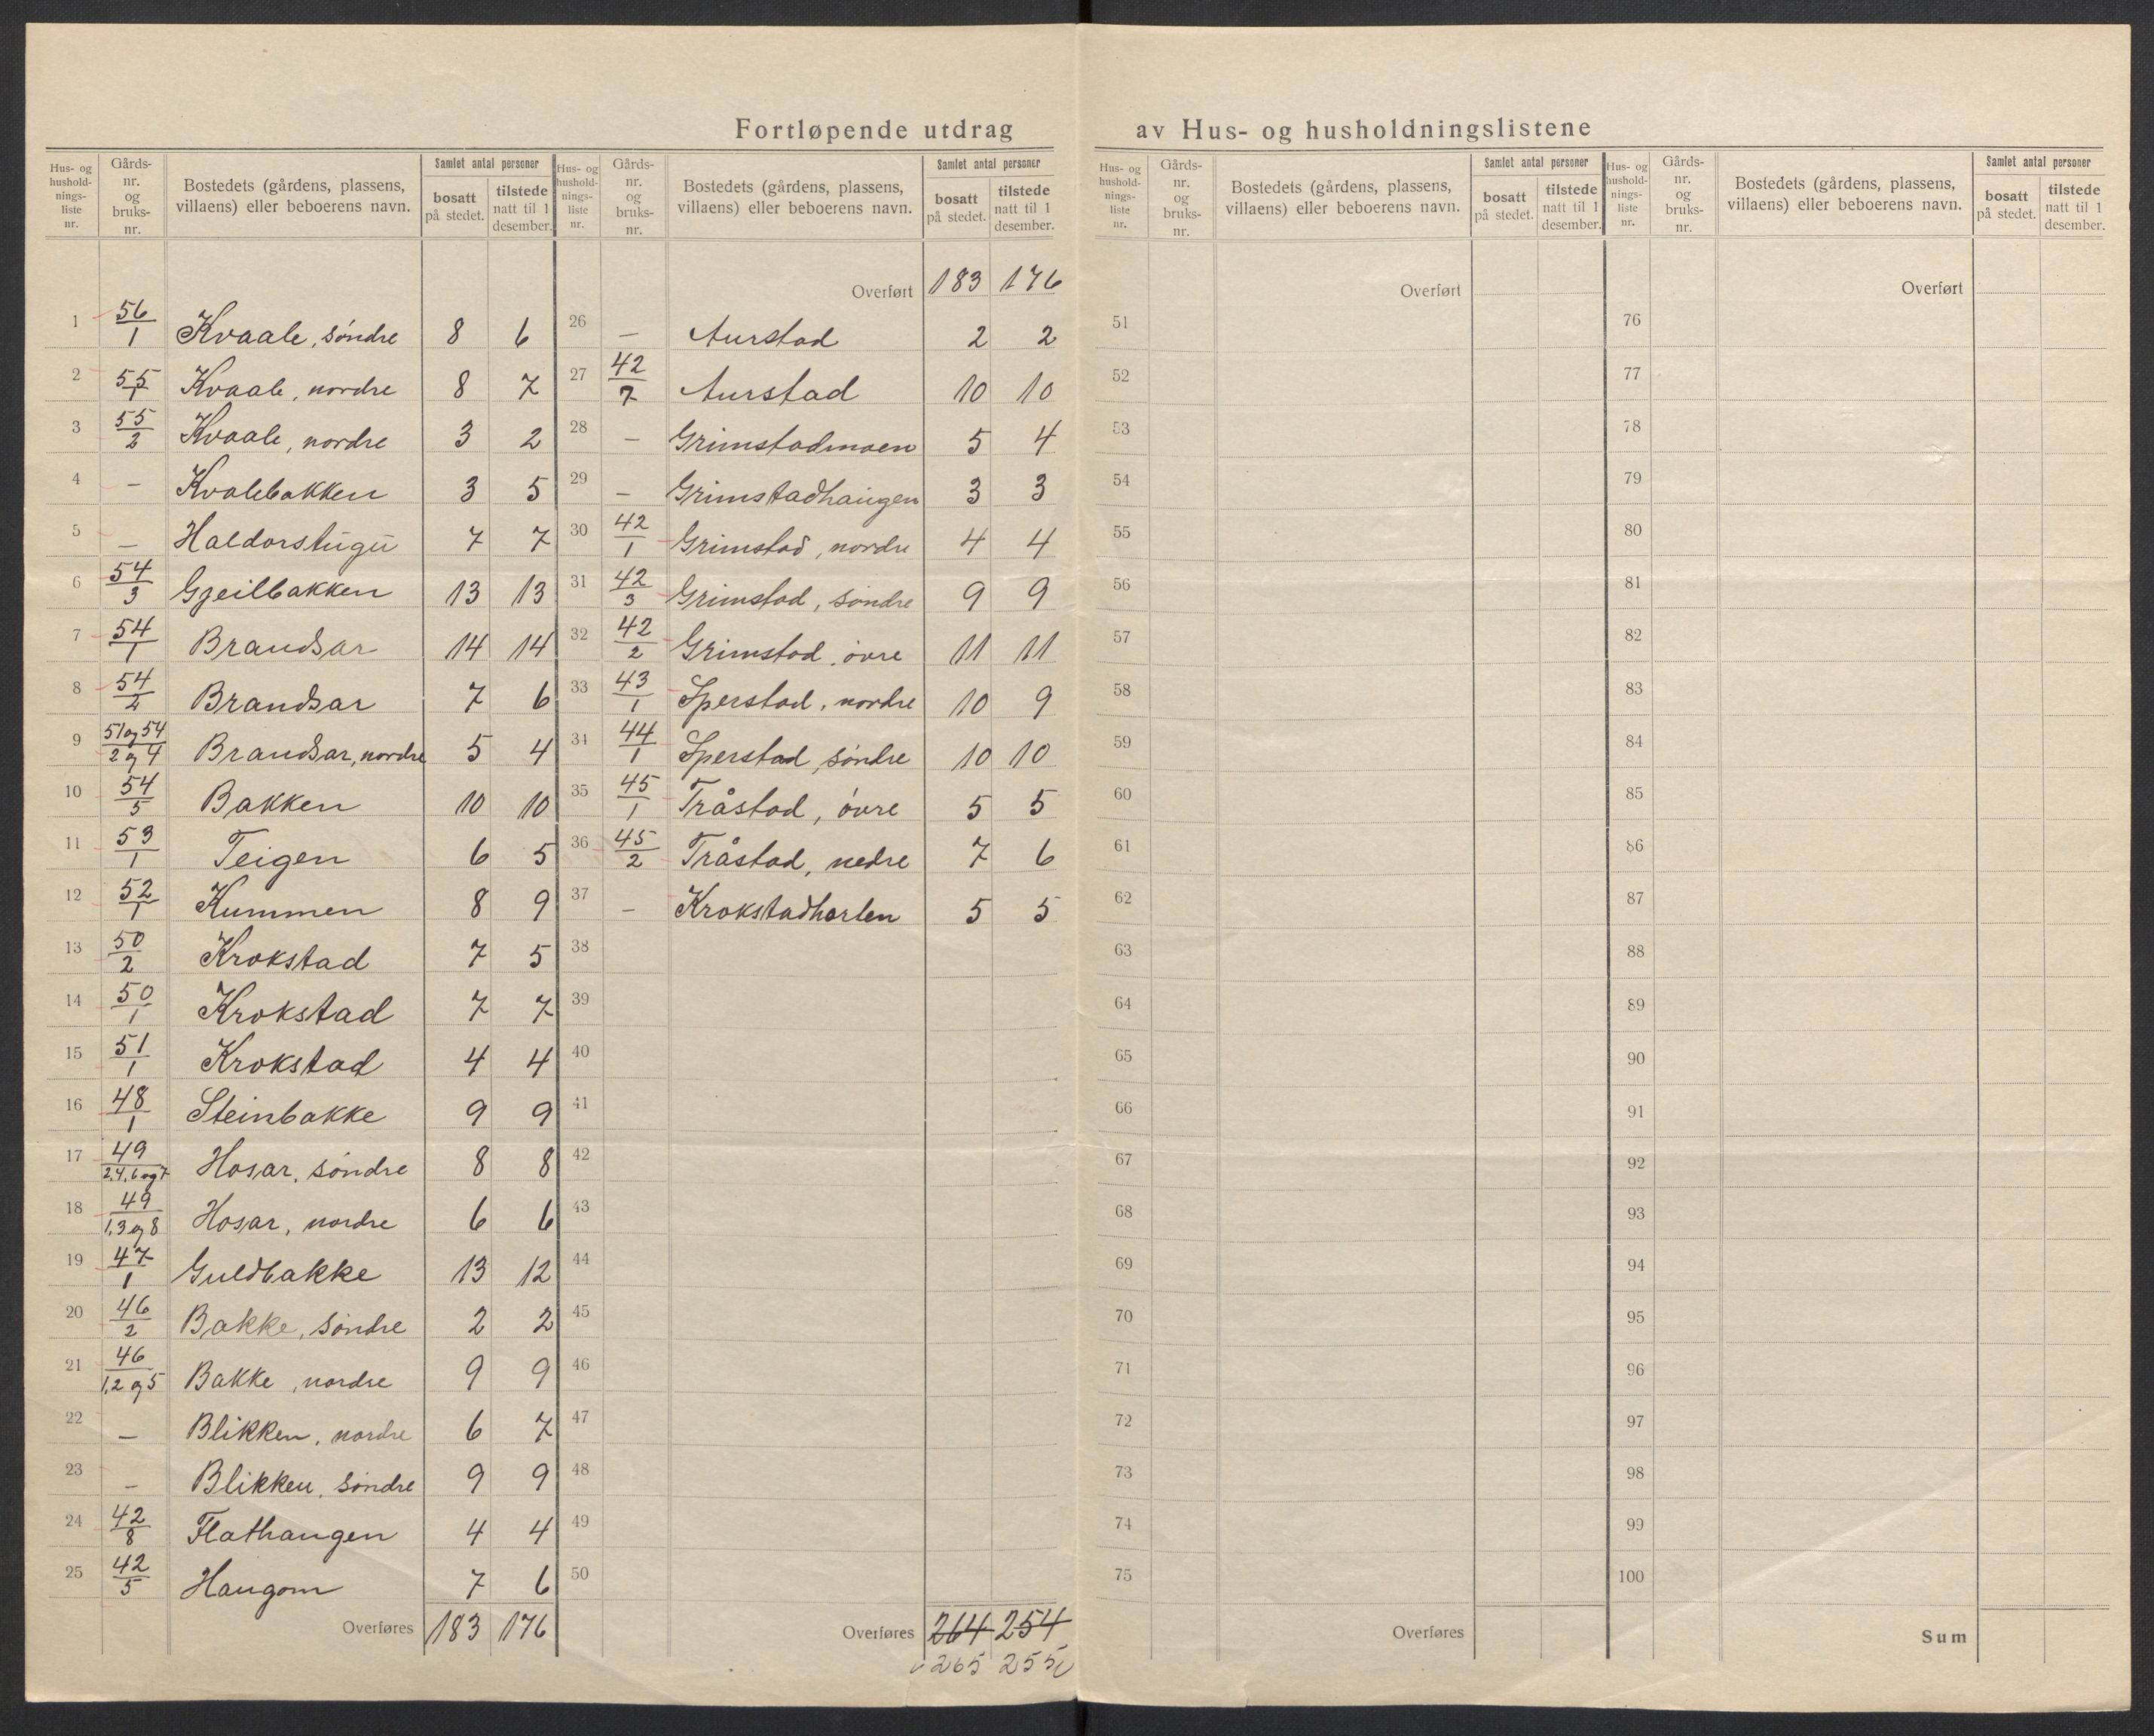 Fortløpende utdrag av Hus- og husholdningslistene
Hus- og hushold-nings-liste nr. Gårds-nr. og bruks-nr. Bostedets (gårdens, plassens, villaens) eller beboerens navn. Samlet antal personer bosatt på stedet. tilstede natt til 1 desember.
1 56/1 Kvaale, søndre 8 6
2 55/1 Kvaale, nordre 8 7
3 55/2 Kvaale, nordre 3 2
4 – Kvalebakken 3 5
5 – Haldorstugu 7 7
6 54/3 Gjeilbakken 13 13
7 54/1 Brandsar 14 14
8 54/2 Brandsar 7 6
9 51 og 54/2 og 4 Brandsar, nordre 5 4
10 54/5 Bakken 10 10
11 53/1 Teigen 6 5
12 52/1 Kummen 8 9
13 50/2 Krokstad 7 5
14 50/1 Krokstad 7 7
15 51/1 Krokstad 4 4
16 48/1 Steinbakke 9 9
17 49/2,4,6 og 7 Hosar, søndre 8 8
18 49/1,3 og 8 Hosar, nordre 6 6
19 47/1 Guldbakke 13 12
20 46/2 Bakke, søndre 2 2
21 46/1,2 og 5 Bakke, nordre 9 9
22 – Blikken, nordre 6 7
23 – Blikken, søndre 9 9
24 42/8 Flathaugen 4 4
25 42/5 Haugom 7 6
Overføres 183 176
Hus- og hushold-nings-liste nr. Gårds-nr. og bruks-nr. Bostedets (gårdens, plassens, villaens) eller beboerens navn. Samlet antal personer bosatt på stedet. tilstede natt til 1 desember.
Overført 183 176
26 – Aurstad 2 2
27 42/7 Aurstad 10 10
28 – Grimstadmoen 5 4
29 – Grimstadhaugen 3 3
30 42/1 Grimstad, nordre 4 4
31 42/3 Grimstad, søndre 9 9
32 42/2 Grimstad, øvre 11 11
33 43/1 Sperstad, nordre 10 9
34 44/1 Sperstad, søndre 10 10
35 45/1 Tråstad, øvre 5 5
36 45/2 Tråstad, nedre 7 6
37 – Krokstadhorten 5 5
38
39
40
41
42
43
44
45
46
47
48
49
50
Overføres 264 254
265 255
Hus- og hushold-nings-liste nr. Gårds-nr. og bruks-nr. Bostedets (gårdens, plassens, villaens) eller beboerens navn. Samlet antal personer bosatt på stedet. tilstede natt til 1 desember.
Overført
51
52
53
54
55
56
57
58
59
60
61
62
63
64
65
66
67
68
69
70
71
72
73
74
75
Overføres
Hus- og hushold-nings-liste nr. Gårds-nr. og bruks-nr. Bostedets (gårdens, plassens, villaens) eller beboerens navn. Samlet antal personer bosatt på stedet. tilstede natt til 1 desember.
Overført
76
77
78
79
80
81
82
83
84
85
86
87
88
89
90
91
92
93
94
95
96
97
98
99
100
Sum